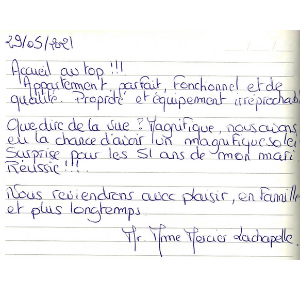 29/05/2021
Accueil au top !!!
Appartement, parfait, Fonctionnel et de
qualité. Propreté et équipement irréprochabl
Que dire de la vue ? Magnifique, nous avons
eu la chance d'avoir un magnifique solei
Surprise pour les 51 ans de mon mari
Réussie !!!
Nous reviendrons avec plaisir, en Famille
et plus longtemps
Mr. Mme Mercier Lachapelle.